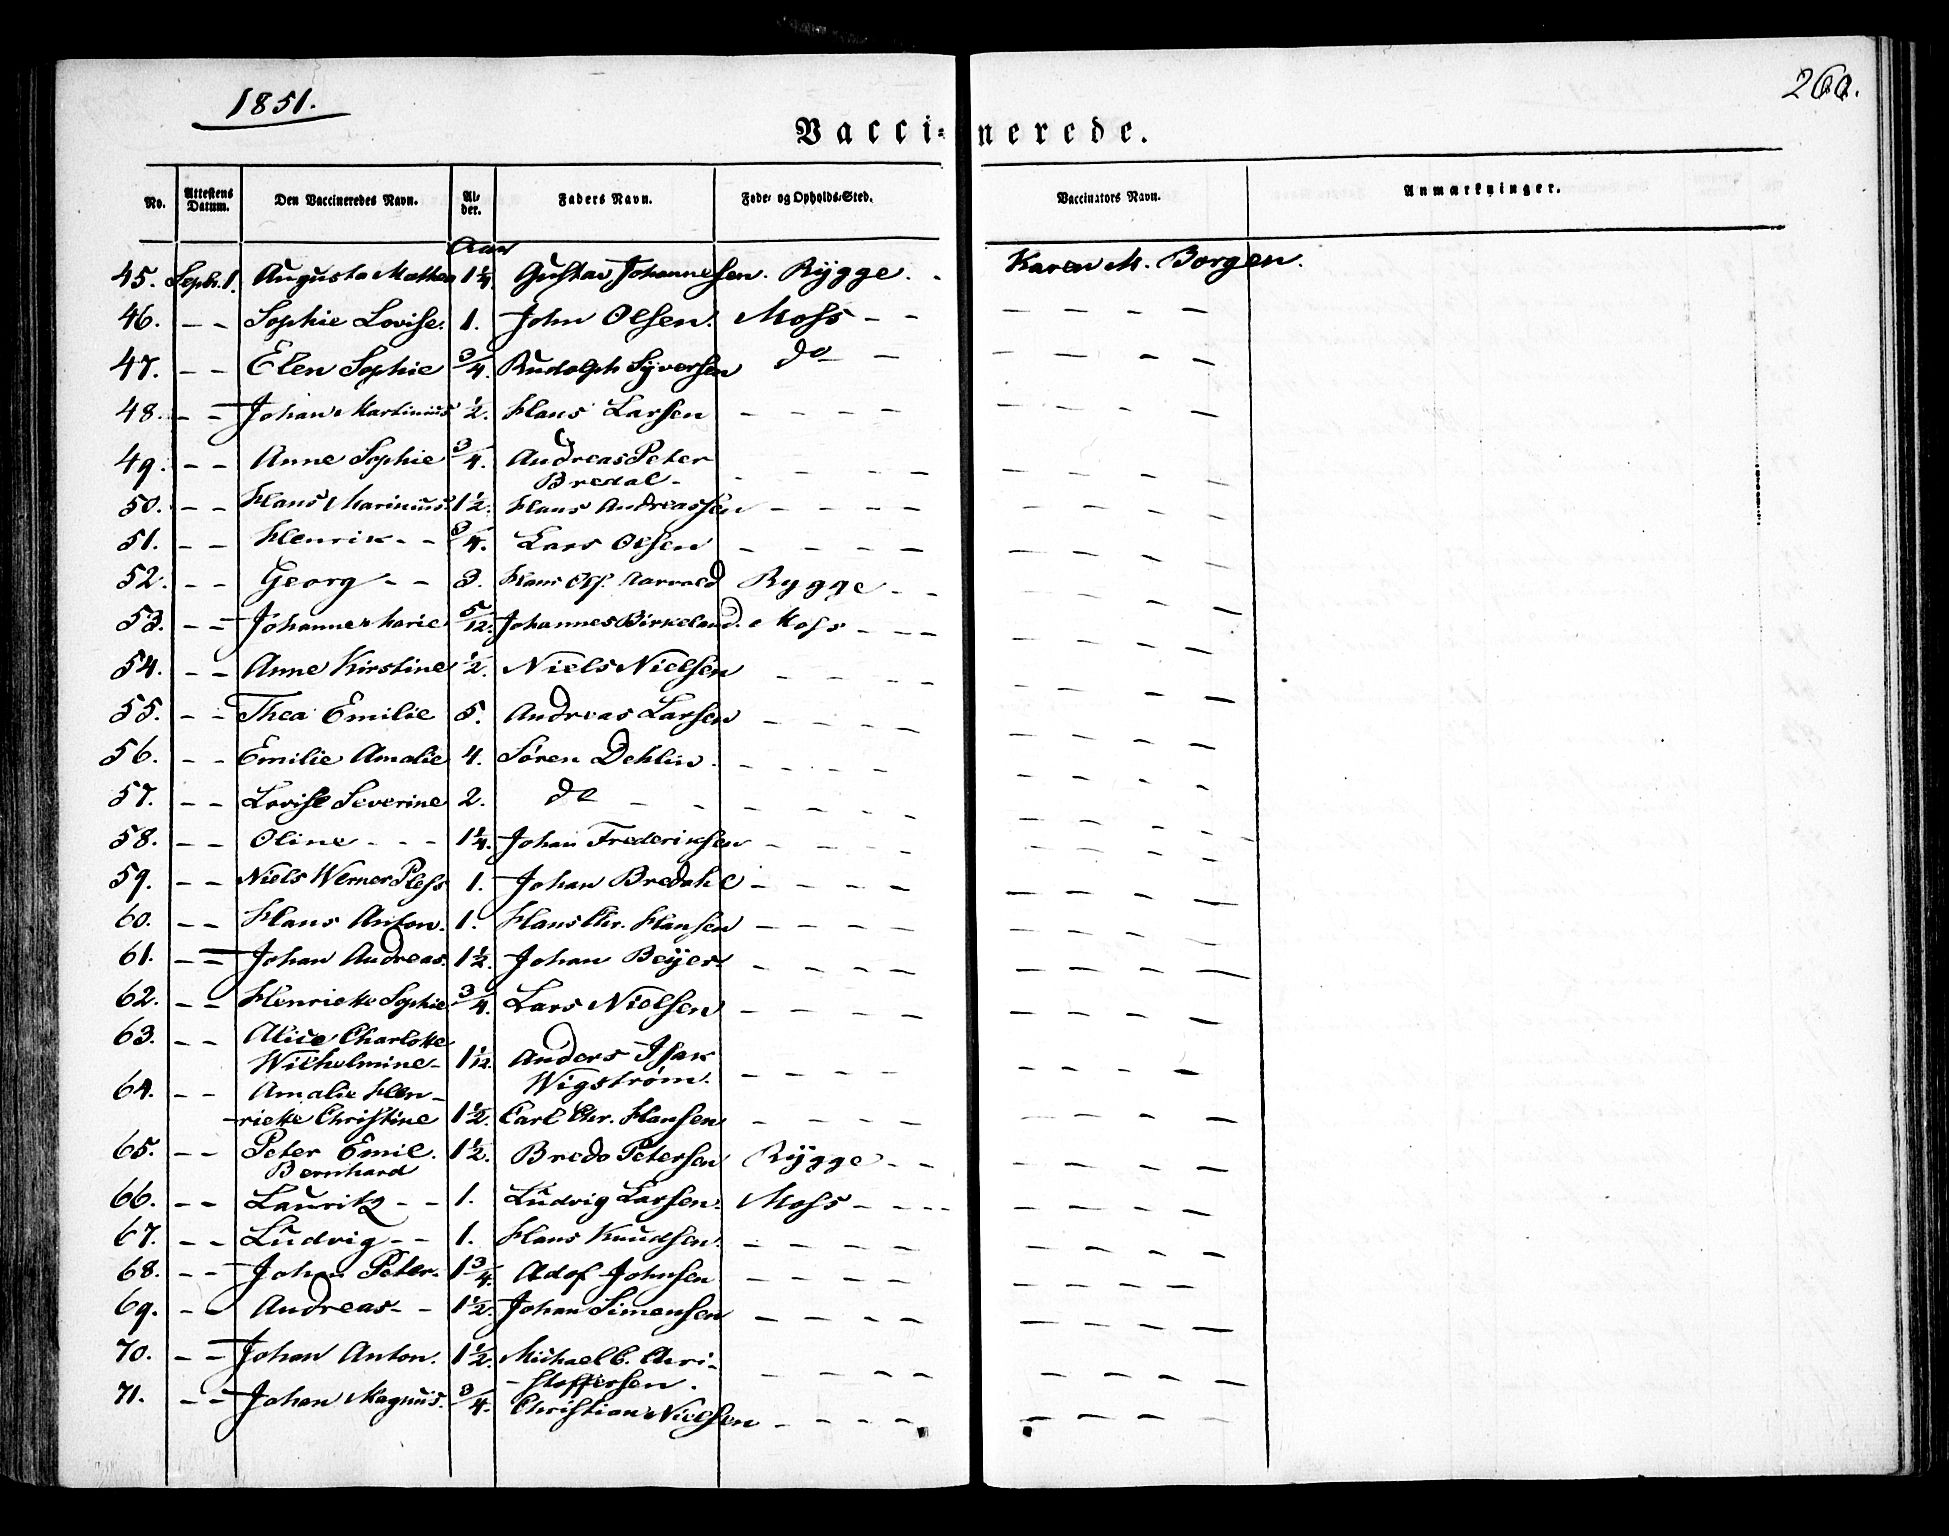 1851.
260.
Vacci- nerede.
No. Attestens Datum. Den Vaccineredes Navn. Al- der. Faders Navn. Føde- og Opholds-Sted. Vaccinators Navn. Anmærkninger.
Aar
45. Septr. 1. Augusta Mathea 1 1/4 Gustav Johannesen. Rÿgge. Karen M. Borgen.
46. – – Sophie Lovise. 1. John Olsen. Moss – – – – – –
47. – – Elen Sophie 3/4. Rudolph Sÿversen do – – – – –
48. – – Johan Martinus 1/2. Hans Larsen – – – – – – – –
49. – – Anne Sophie 3/4. Andreas Peter
Bredal – – – – – – – – –
50. – – Hans Marinius. 1 1/2. Hans Andreassen – – – – – – – –
51. – – Henrik – – 3/4. Lars Olsen – – – – – – – –
52. – – Georg – – 3. Hans Ol. Rygge – – – – – –
53. – – Johanne Marie 5/12. Johannes Birkeland. Moss – – – – – – –
54. – – Anne Kirstine 1/2. Niels Nielsen – – – – – – – –
55. – – Thea Emilie 5. Andreas Larsen – – – – – – – –
56. – – Emilie Amalie 4. Sören Dehlin. – – – – – – – –
57. – – Lovise Severine 2. do – – – – – – – – – –
58. – – Oline – – – 1 1/4. Johan Frederiksen – – – – – – – –
59. – – Niels Werner Pless 1. Johan Bredahl – – – – – – – –
60. – – Hans Anton. 1. Hans Chr. Hansen – – – – – – – –
61. – – Johan Andreas. 1 1/2. Johan Beÿer. – – – – – – – –
62. – – Henriette Sophie 3/4. Lars Nielsen – – – – – – – –
63. – – Alice Charlotte
Wilhelmine – 1 1/12. Anders Isak
Wigström. – – – – – – – –
64. – – Amalie Hen-
riette Christine 1 1/2. Carl Chr. Hansen – – – – – – – –
65. – – Peter Emil. 1 1/2. Bredo Petersen Rÿgge – – – – – –
Bernhard
66. – – Lauritz – – 1. Ludvig Larsen. Moss – – – – – – –
67. – – Ludvig – – 1. Hans Knudsen. – – – – – – – –
68. – – Johan Peter. 1 3/4. Adof Johnsen – – – – – – – –
69. – – Andreas – – 1 1/2. Johan Simensen – – – – – – – –
70. – – Johan Anton. 1 1/2. Michael C. Chri-
stoffersen. – – – – – – – –
71. – – Johan Magnus. 3/4. Christian Nielsen – – – – – – – –